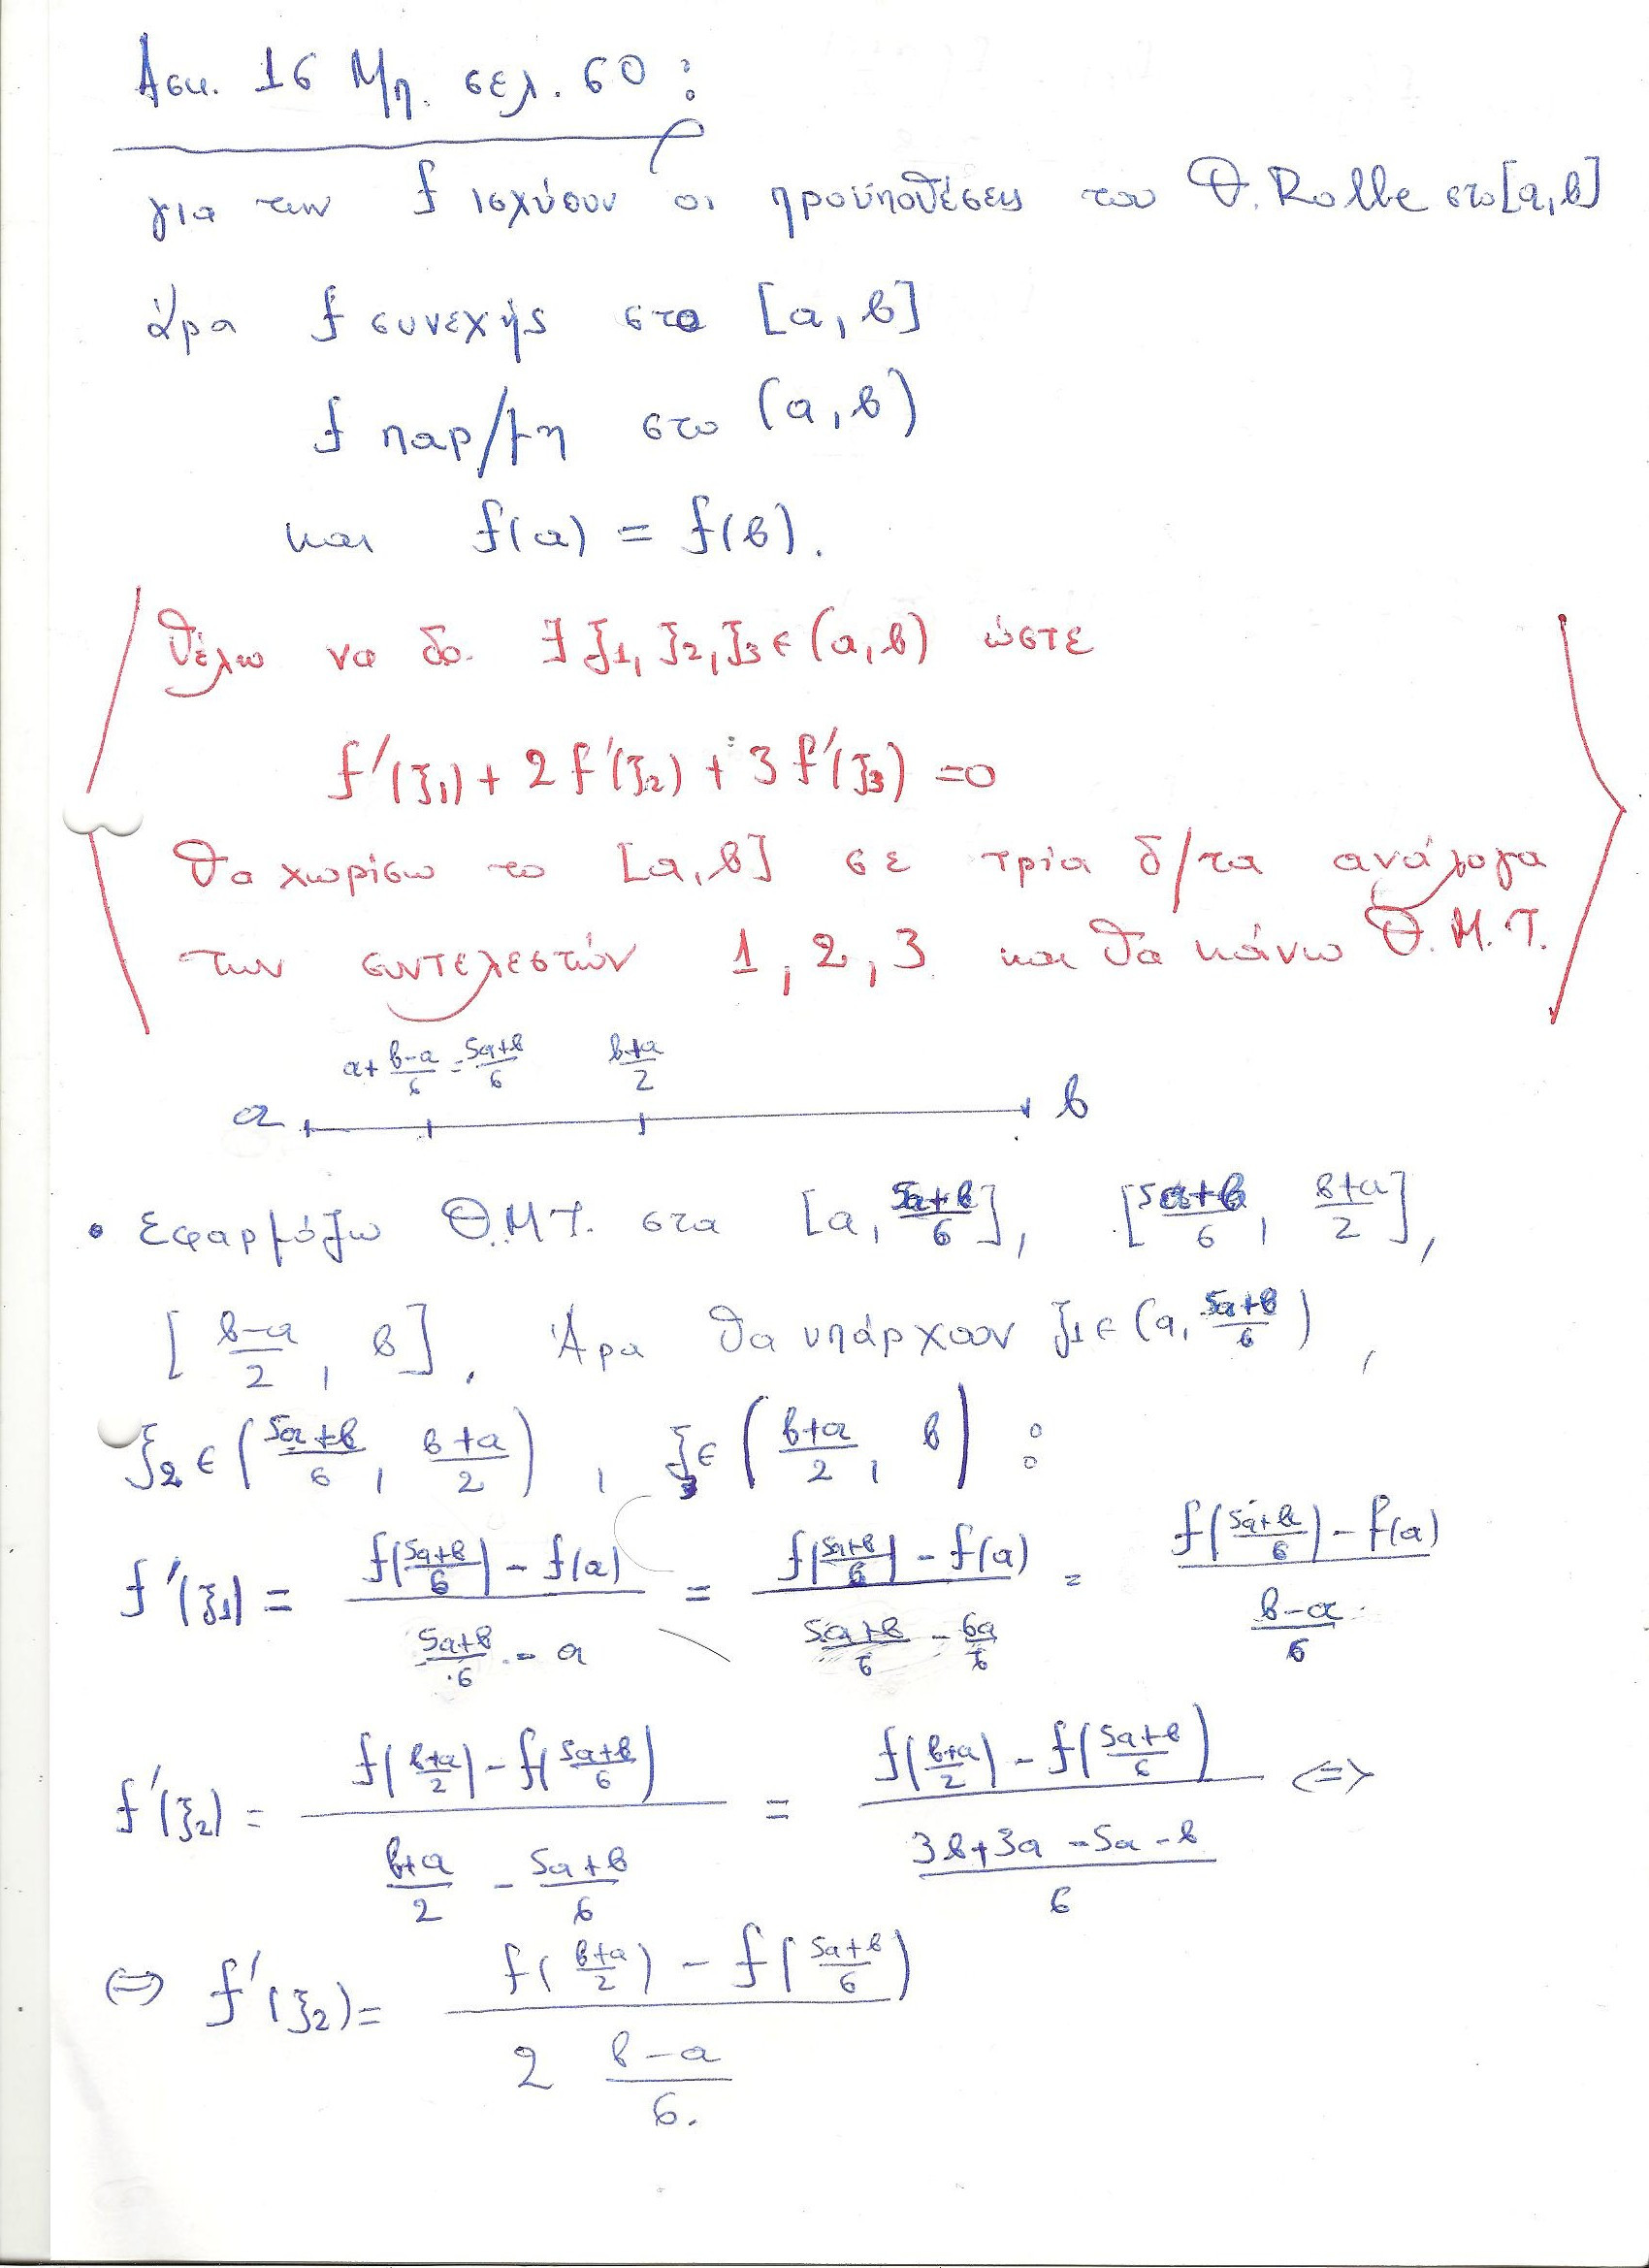 Ασκ. 16 Μπ. σελ. 60 :
για την f ισχύουν οι προϋποθέσεις του Θ. Rolle στο [α, β]
άρα f συνεχής στο [α, β]
f παρ/μη στο (α, β)
και f(α) = f(β).
θέλω να δο. ∃ ξ1, ξ2, ξ3 ∈ (α, β) ώστε
f'(ξ1) + 2 f'(ξ2) + 3 f'(ξ3) = 0
θα χωρίσω το [α, β] σε τρία δ/τα ανάλογα
των συντελεστών 1, 2, 3 και θα κάνω Θ.Μ.Τ.
α + (β-α)/6 = (5α+β)/6 (β+α)/2
α β
• Εφαρμόζω Θ.Μ.Τ. στα [α, (5α+β)/6], [(5α+β)/6, (β+α)/2],
[(β-α)/2, β]. Άρα θα υπάρχουν ξ1 ∈ (α, (5α+β)/6),
ξ2 ∈ ((5α+β)/6, (β+α)/2), ξ3 ∈ ((β+α)/2, β) :
f'(ξ1) = (f((5α+β)/6) - f(α))/((5α+β)/6 - α) = (f((5α+β)/6) - f(α))/((5α+β)/6 - 6α/6) = (f((5α+β)/6) - f(α))/((β-α)/6)
f'(ξ2) = (f((β+α)/2) - f((5α+β)/6))/((β+α)/2 - (5α+β)/6) = (f((β+α)/2) - f((5α+β)/6))/((3β+3α-5α-β)/6) <=>
<=> f'(ξ2) = (f((β+α)/2) - f((5α+β)/6))/(2 (β-α)/6).